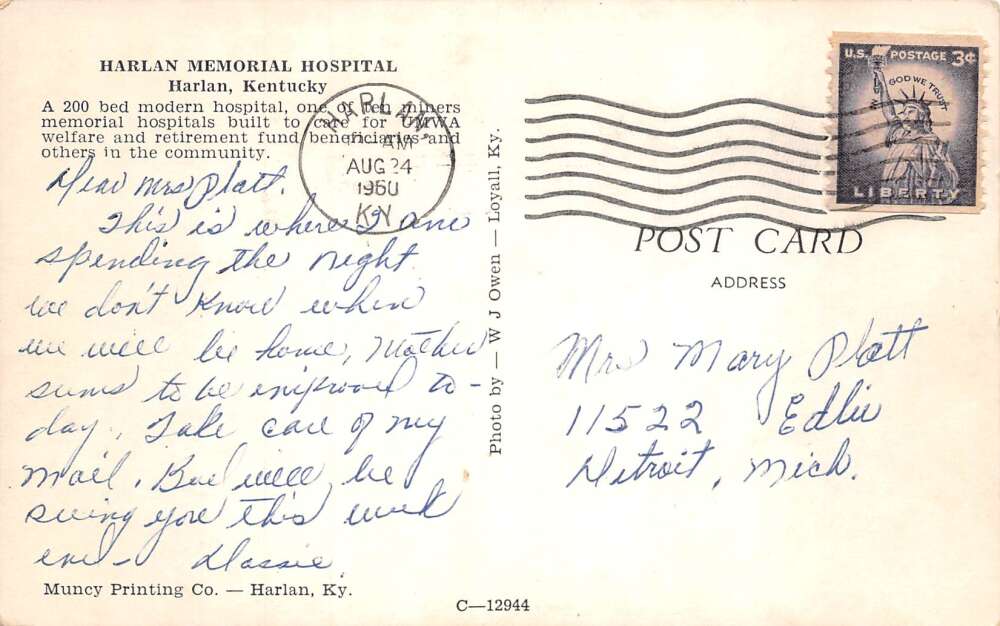 HARLAN MEMORIAL HOSPITAL
Harlan, Kentucky
A 200 bed modern hospital, one of ten miners
memorial hospitals built to care for UMWA
welfare and retirement fund beneficiaries and
others in the community.
Dear Mrs Platt.
This is where I am
spending the night
we don't know when
we will be home, Mother
seems to be improved to-
day. Take care of my
mail. will be
seeing you this week
end -
Muncy Printing Co. — Harlan, Ky.
Photo by — W J Owen — Loyall, Ky.
C—12944
HARLAN
AM
AUG 24
1960
KY
U.S. POSTAGE 3¢
IN GOD WE TRUST
LIBERTY
POST CARD
ADDRESS
Mrs Mary Platt
11522 Edlie
Detroit, Mich.